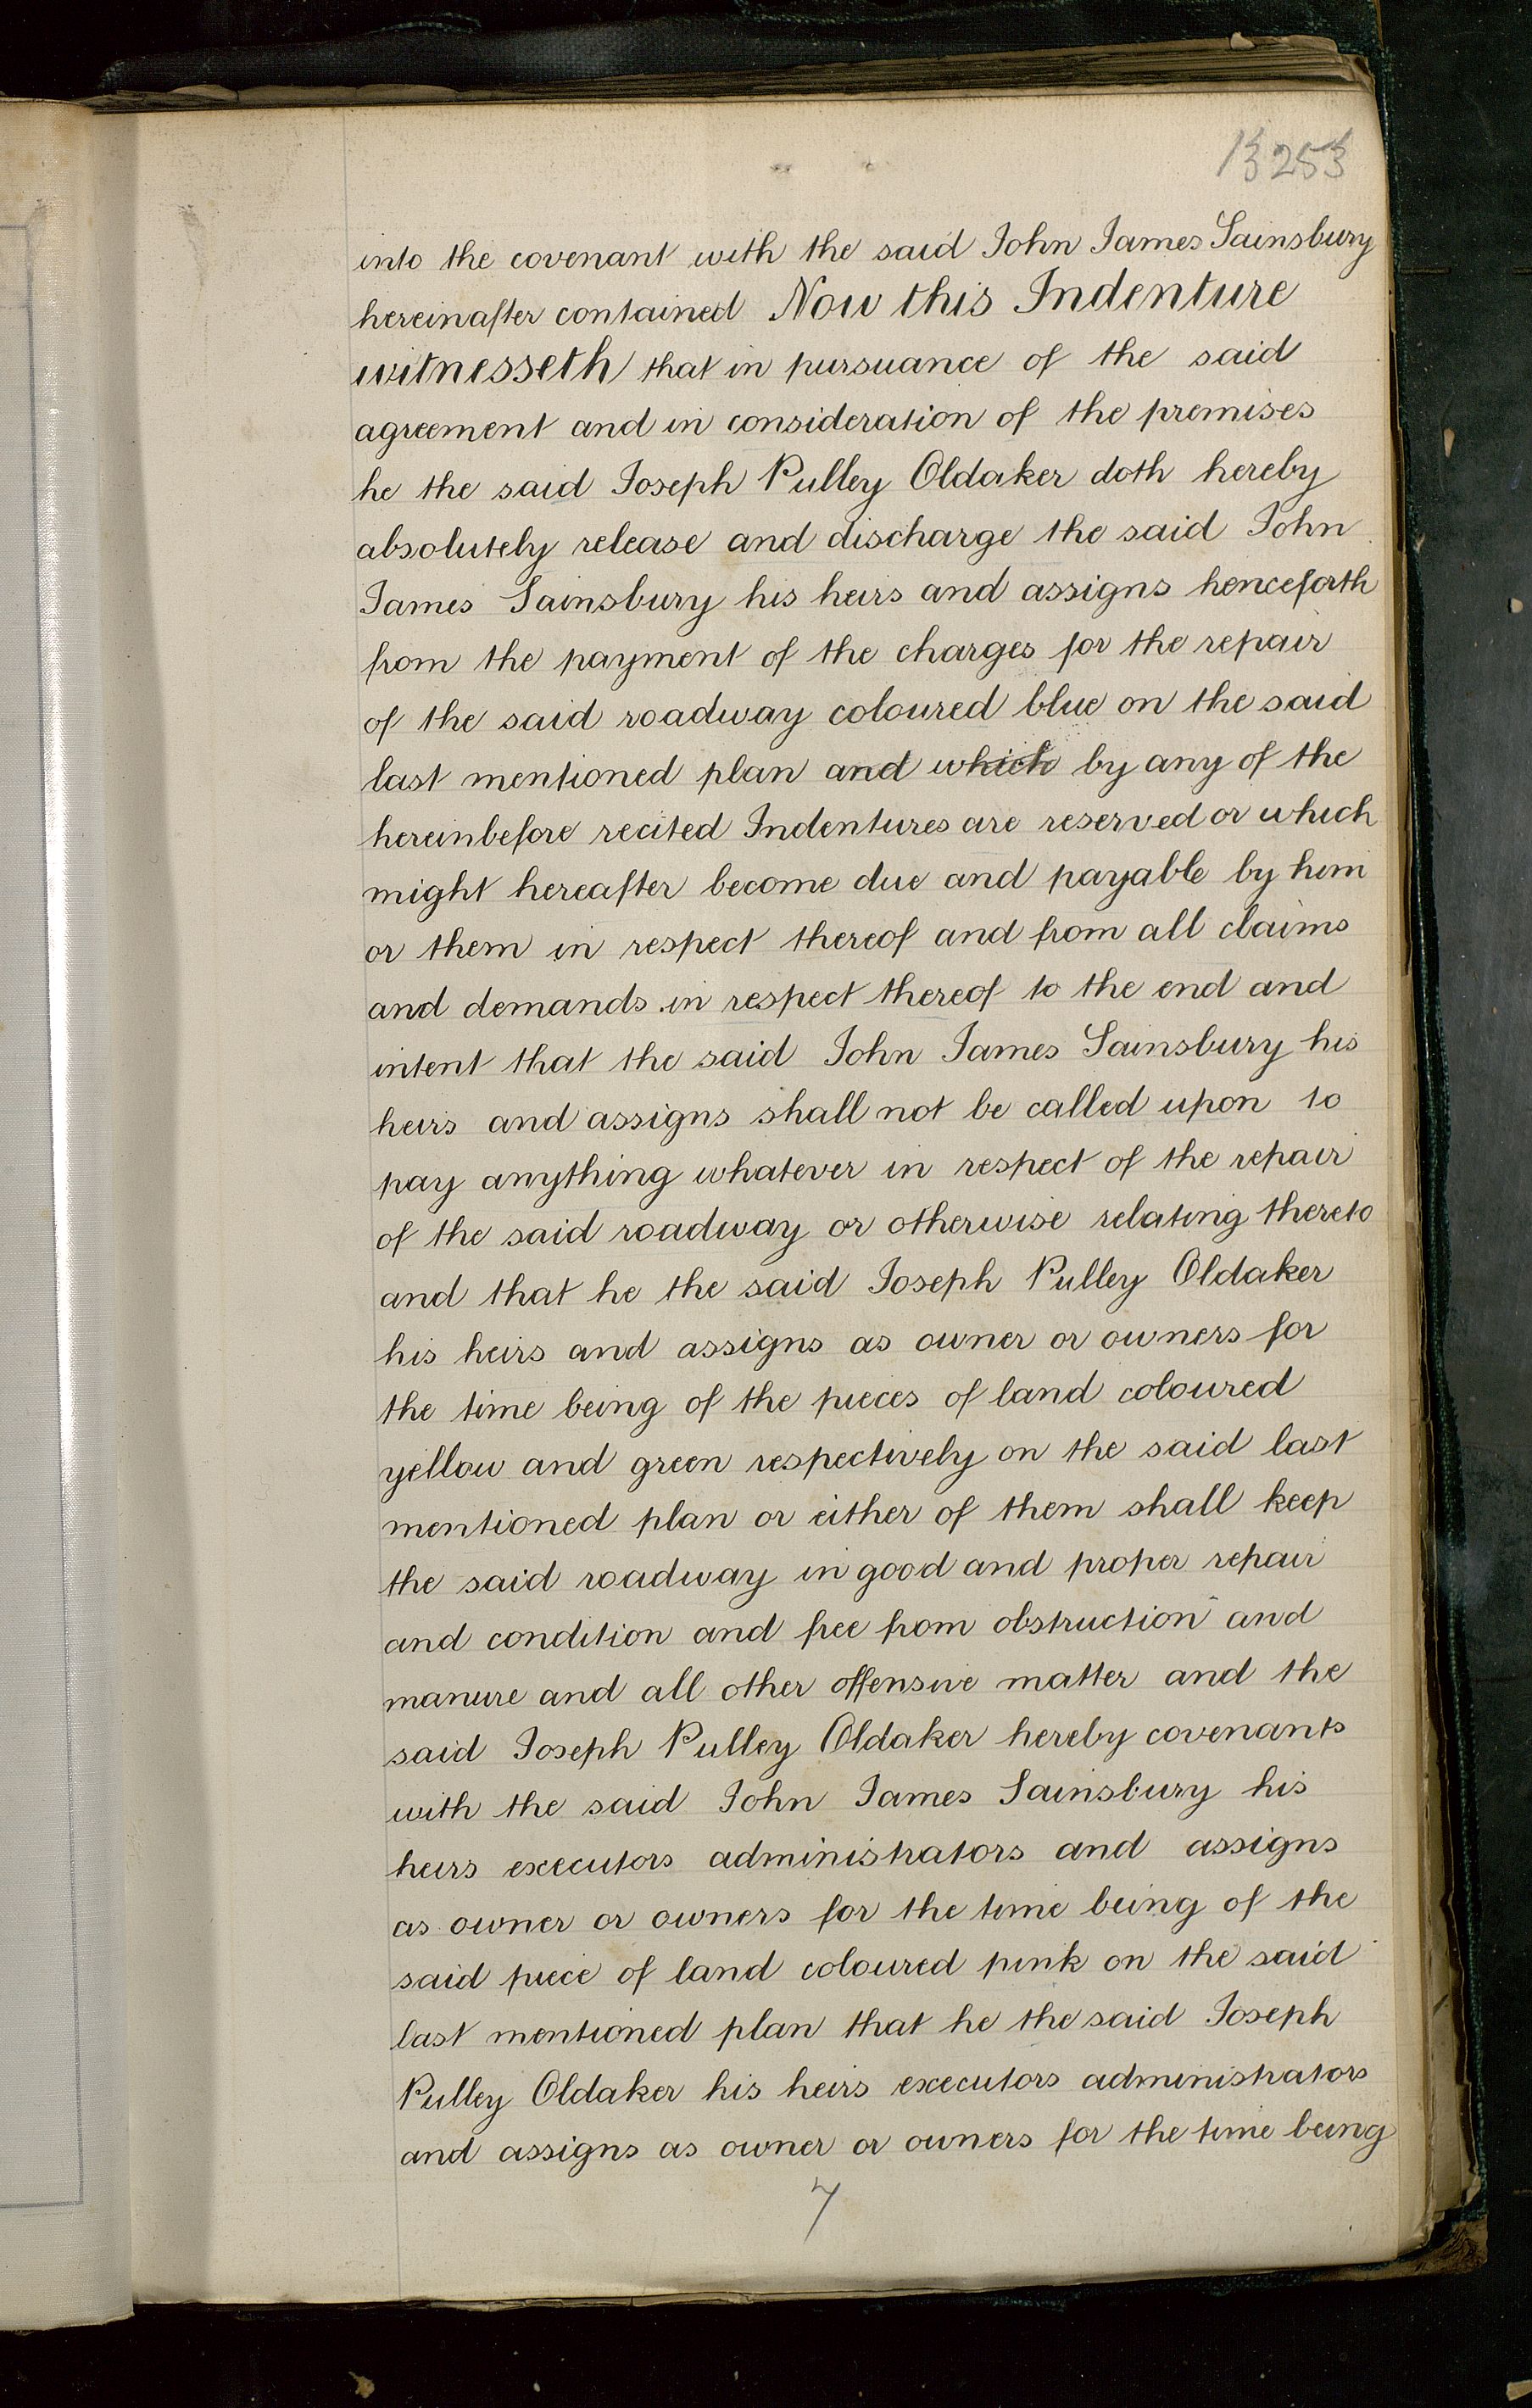 253
into the covenant with the said John James Sainsbury
hereinafter contained Now this Indenture
witnesseth that in pursuance of the said
agreement and in consideration of the premises
he the said Joseph Pulley Oldaker doth hereby
absolutely release and discharge the said John
James Sainsbury his heirs and assigns henceforth
from the payment of the charges for the repair
of the said roadway coloured blue on the said
last mentioned plan and which by any of the
hereinbefore recited Indentures are reserved or which
might hereafter become due and payable by him
or them in respect thereof and from all claims
and demands in respect thereof to the end and
intent that the said John James Sainsbury his
heirs and assigns shall not be called upon to
pay anything whatever in respect of the repair
of the said roadway or otherwise relating thereto
and that he the said Joseph Pulley Oldaker
his heirs and assigns as owner or owners for
the time being of the pieces of land coloured
yellow and green respectively on the said last
mentioned plan or either of them shall keep
the said roadway in good and proper repair
and condition and free from obstruction and
manure and all other offensive matter and the
said Joseph Pulley Oldaker hereby covenants
with the said John James Sainsbury his
heirs executors administrators and assigns
as owner or owners for the time being of the
said piece of land coloured pink on the said
last mentioned plan that he the said Joseph
Pulley Oldaker his heirs executors administrators
and assigns as owner or owners for the time being
7